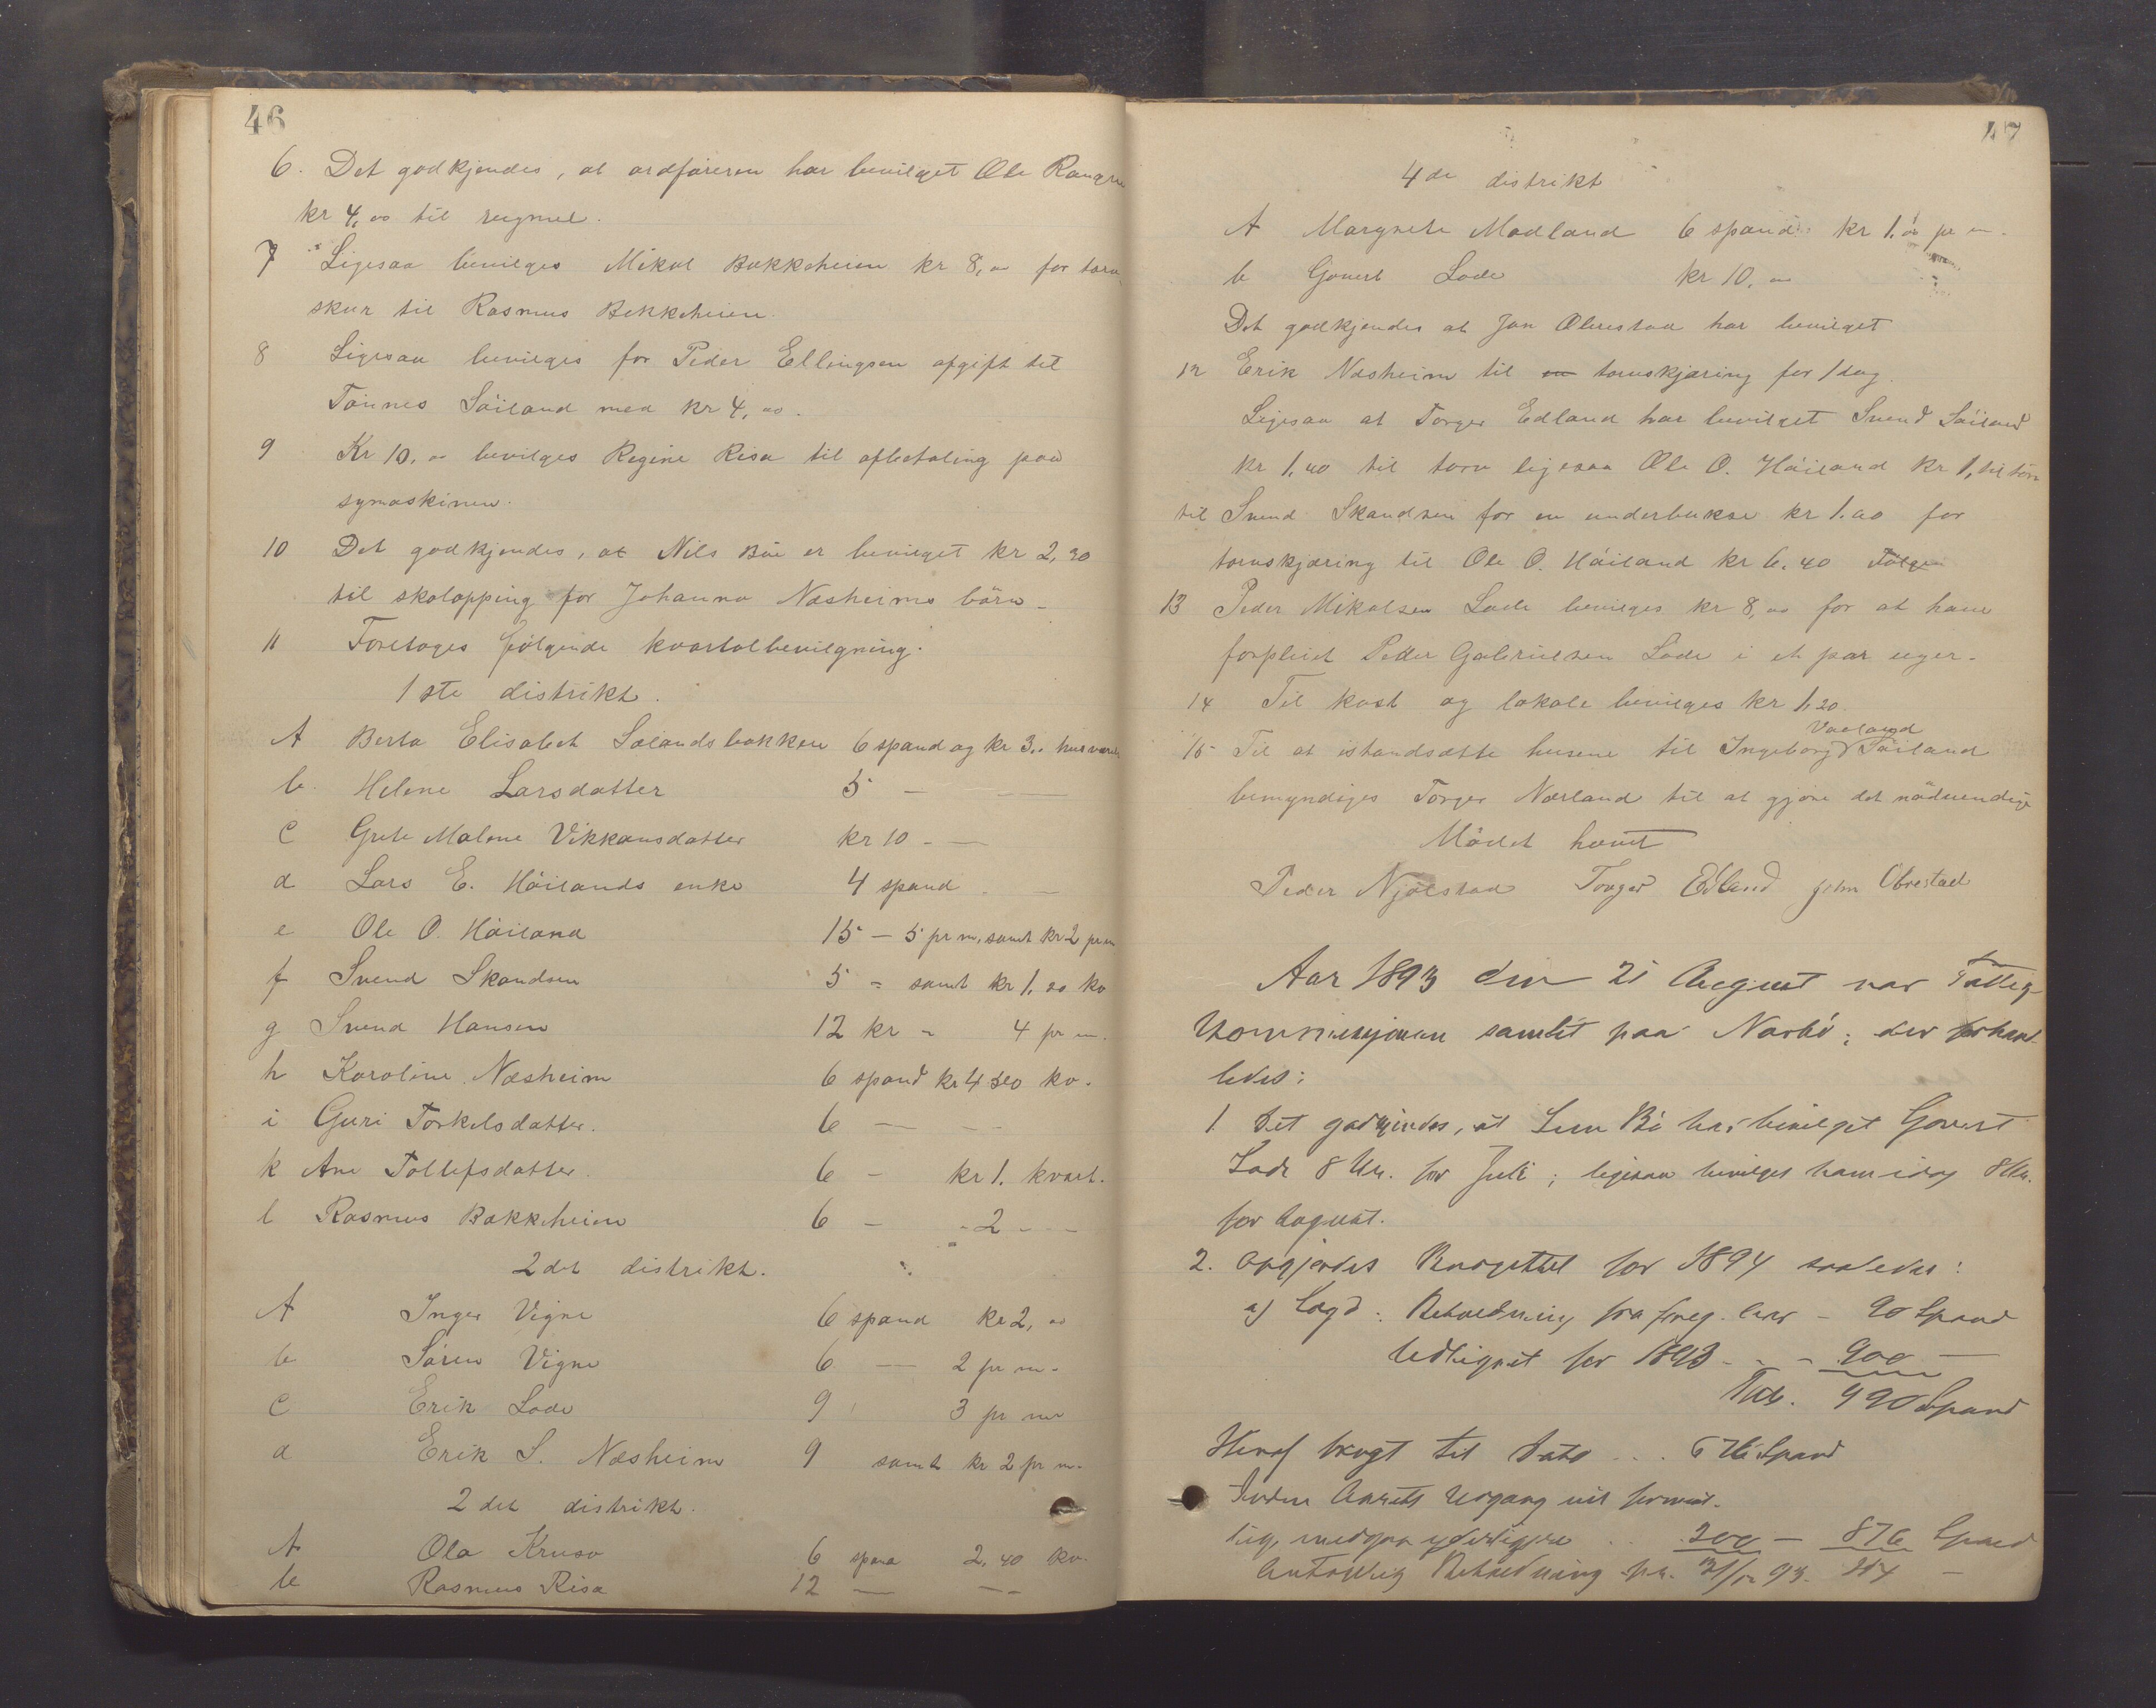 46
6. Det godkjendes, at ordføreren har bevilget Ole
kr 4,00 til rugmel.
7 Ligesaa bevilges Mikal Bakkeheien kr 8,00 for torv
skur til Rasmus Bakkeheien.
8 Ligesaa bevilges for Peder Ellingsen afgift til
Tönnes Söiland med kr 4,00.
9 Kr 10,00 bevilges Regine Risa til afbetaling paa
symaskinen.
10 Det godkjendes, at Nils Bue er bevilget kr 2,30
til skolapping for Johanna Næsheims börn
11 Foretages fölgende kvartalbevilgning.
1ste distrikt.
A Berta Elisabet Sælandsbakken 6 spand og kr 3..
b. Helene Larsdatter 5 — —
c Grete Malene Vikkansdatter kr 10 - —
d Lars E. Höilands enke 4 spand —
e Ole O. Höiland 15 — 5 pr m, samt kr 2 pr m
f Svend Skandsen 5 = samt kr 1.20 kv
g Svend Hansen 12 kr = 4 pr m.
h Karoline Næsheim 6 spand kr 4 kv.
i Guri Torkelsdatter. 6 — —
k Ane Tollefsdatter. 6 - kr 1. kvart.
l Rasmus Bakkeheien 6 - - 2 - -
2det distrikt.
A Inger Vigre 6 spand kr 2,00
b Sören Vigre 6 — 2 pr m.
c Erik Lode 9 3 pr m
d Erik S. Næsheim 9 samt kr 2 pr m.
2det distrikt.
A Ola Kruse 6 span 2,40 kv.
b Rasmus Risa 12 — — -
47
4de distrikt
A Margrete Madland 6 spand kr 1.00 pr m.
b Govert Lode kr 10,00
Det godkjendes at Jon Obrestad har bevilget
12 Erik Næsheim til en torvskjæring for 1 dag.
Ligesaa at Torger Edland har bevilget Svend Söiland
kr 1,40 til torv ligesaa Ole O. Höiland kr 1, til törv
til Svend Skandsen for en underbukse kr 1.00 for
torvskjæring til Ole O. Höiland kr 6.40 Fölgen
13 Peder Mikalsen Lode bevilges kr 8,00 for at have
forpleiet Peder Gabrielsen Lode i et par uger.
14 Til kost og lokale bevilges kr 1,20.
Varland
15 Til at istandsætte husene til Ingeborg Söiland
bemyndiges Torger Nærland til at gjöre det nödvendige
Mödet hævet
Peder Njölstad Torger Edland John Obrestad
Aar 1893 den 21 August var Fattig-
kommissjonen samlet paa Nærbö; der forhand-
ledes:
1. Det godkjendes, at Bö har bevilget Govert
Lode 8 Kr. for Juli; ligesaa bevilges ham idag 8 Kr.
for August.
2. Opgjordes Budgettet for 1894 saaledes:
a) Lægd: Beholdning fra foreg. Aar - 90 Spand
Udlignet for 1893 - - - 900 —
Tils. 990 Spand
Heraf brugt til Dato . . . 676 Spand
Inden Aarets Udgang vil forment-
lig, medgaa yderligere . . 200 — 876 Spand
Antagelig Beholdning pr. 31/12 93. 114 —